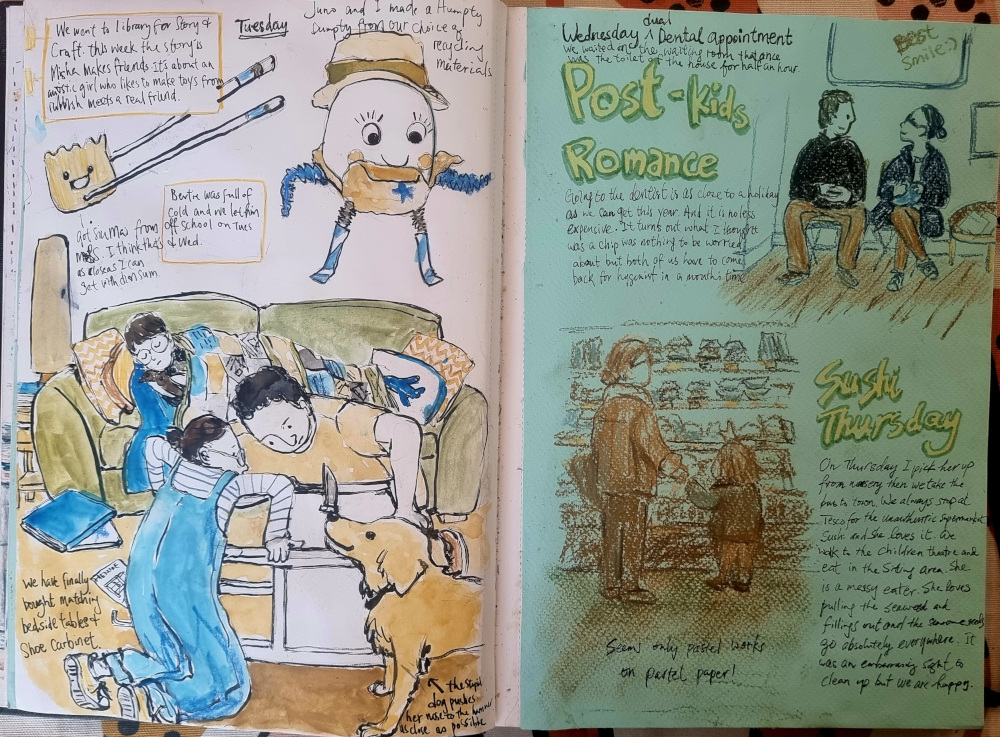 We went to library for Story &
Craft. this week the story is
Misha makes friends It's about an
autistic girl who likes to make toys from
rubbish meets a real friend.
Tuesday
Juno and I made a Humpty
Dumpty from our choice of
recycling
materials
Bertie was full of
cold and we let him
off School on Tues
& Wed.
Got siumai from
M&S. I think that's
as close as I can
get with dim sum.
We have finally
bought matching
bedside tables &
Shoe Carbinet.
↖ the stupid
dog pushes
her nose to the hammer
as close as possible
Wednesday dual Dental appointment
We waited on the waiting room that once
was the toilet of the house for half an hour.
Best
Smile :)
Post-Kids
Romance
Going to the dentist is as close to a holiday
as we can get this year. And it is no less
expensive. It turns out what I thought
was a chip was nothing to be worried
about but both of us have to come
back for hygenist in a month's time
Sushi
Thursday
On Thursday I pick her up
from nursery then we take the
bus to town. We always stop at
Tesco for the unauthentic supermarket
Sushi and she loves it. We
walk to the Children theatre and
eat in the Siting area. She
is a messy eater. She loves
pulling the seaweed and
fillings out and the sesame seeds
go absolutely everywhere. It
was an embarrassing sight to
clean up but we are happy.
Seems only pastel works
on pastel paper!